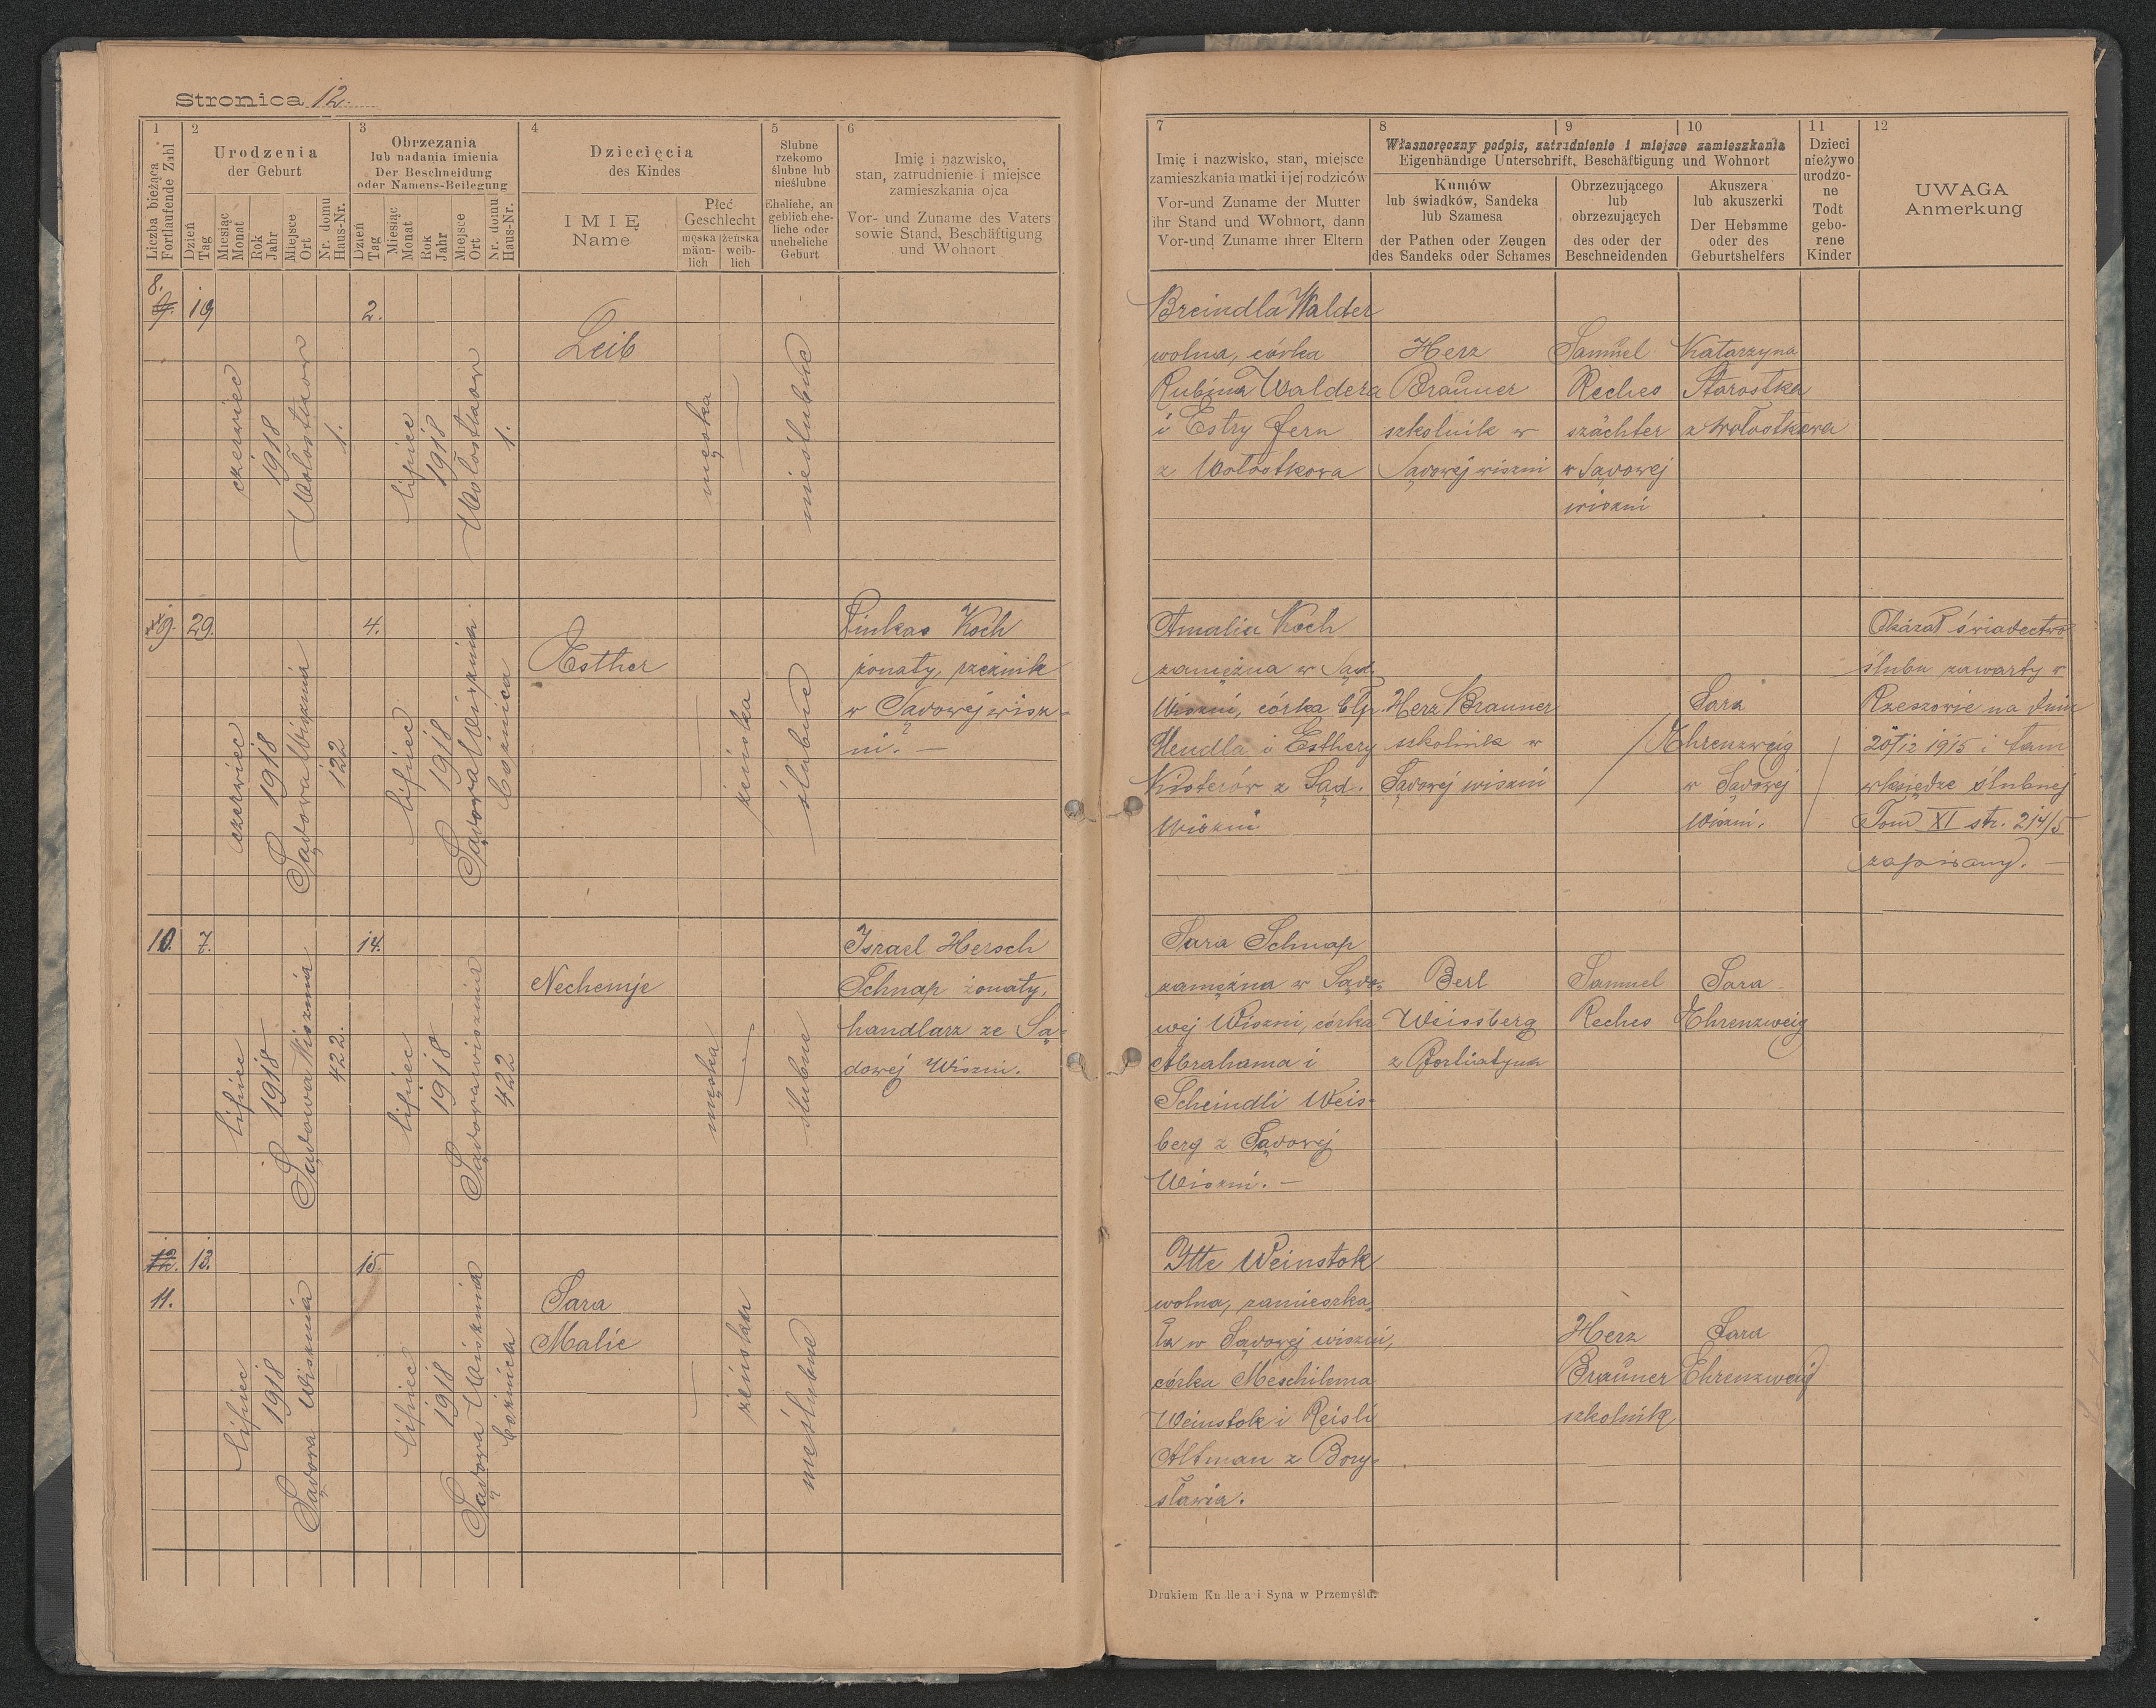 Stronica 12.
1
2
3
4
5
6
Liczba bieżąca
Fortlaufende Zahl
Urodzenia
der Geburt
Obrzezania
lub nadania imienia
Der Beschneidung
oder Namens-Beilegung
Dziecięcia
des Kindes
Ślubne
rzekomo
ślubne lub
nieślubne
Eheliche, an
geblich ehe-
liche oder
uneheliche
Geburt
Imię i nazwisko,
stan, zatrudnienie i miejsce
zamieszkania ojca
Vor- und Zuname des Vaters
sowie Stand, Beschäftigung
und Wohnort
Dzień
Tag
Miesiąc
Monat
Rok
Jahr
Miejsce
Ort
Nr. domu
Haus-Nr.
Dzień
Tag
Miesiąc
Monat
Rok
Jahr
Miejsce
Ort
Nr. domu
Haus-Nr.
IMIĘ
Name
Płeć
Geschlecht
męska
männ-
lich
żeńska
weib-
lich
7
8
9
10
11
12
Imię i nazwisko, stan, miejsce
zamieszkania matki i jej rodziców
Vor-und Zuname der Mutter
ihr Stand und Wohnort, dann
Vor-und Zuname ihrer Eltern
Własnoręczny podpis, zatrudnienie i miejsce zamieszkania
Eigenhändige Unterschrift, Beschäftigung und Wohnort
Kumów
lub świadków, Sandeka
lub Szamesa
der Pathen oder Zeugen
des Sandeks oder Schames
Obrzezującego
lub
obrzezujących
des oder der
Beschneidenden
Akuszera
lub akuszerki
Der Hebamme
oder des
Geburtshelfers
Dzieci
nieżywo
urodzo-
ne
Todt
gebo-
rene
Kinder
UWAGA
Anmerkung
8.
9.
19
czerwiec
1918
Wołostków
1.
2.
lipiec
1918
Wołostków
1.
Leib
męska
nieślubne
Breindla Walder
wolna, córka
Rubina Waldera
i Estry Fern
z Wołostkowa
Herz
Brauner
szkolnik w
Sądowej wiszni
Samuel
Reches
szächter
w Sądowej
wiszni
Katarzyna
Starostka
z Wołostkowa
9.
29.
czerwiec
1918
Sądowa Wisznia
122
4.
lipiec
1918
Sądowa Wisznia
bożnica
Esther
żeńska
ślubne
Pinkas Koch
żonaty, rzeźnik
w Sądowej wisz-
ni. —
Amalia Koch
zamężna w Sąd.
Wiszni, córka
Hendla i Esthery
z Sąd.
Wiszni
Herz Brauner
szkolnik w
Sądowej wiszni
Sara
Ehrenzweig
w Sądowej
Wiszni.
Okazał świadectwo
ślubu zawarty w
Rzeszowie na dniu
20/12 1915 i tam
w księdze ślubnej
Tom XI str. 214/5
zapisany. —
10.
7.
lipiec
1918
Sądowa Wisznia
422.
14.
lipiec
1918
Sądowawisznia
422
Nechemje
męska
ślubne
Izrael Hersch
Schnap żonaty,
handlarz ze Są-
dowej Wiszni.
Sara Schnap
zamężna w Sądo-
wej Wiszni, córka
Abrahama i
Scheindli Weis-
berg z Sądowej
Wiszni. —
Berl
Weissberg
z
Samuel
Reches
Sara
Ehrenzweig
12.
11.
13.
lipiec
1918
Sądowa Wisznia
15
lipiec
1918
Sądowa Wisznia
bożnica
Sara
Malie
żeńska
nieślubne
Itte Weinstok
wolna, zamieszka-
ła w Sądowej wiszni,
córka Meschilema
Weinstok i Reisli
Altman z Bory-
sławia.
Herz
Brauner
szkolnik
Sara
Ehrenzweig
Drukiem Knllera i Syna w Przemyślu.